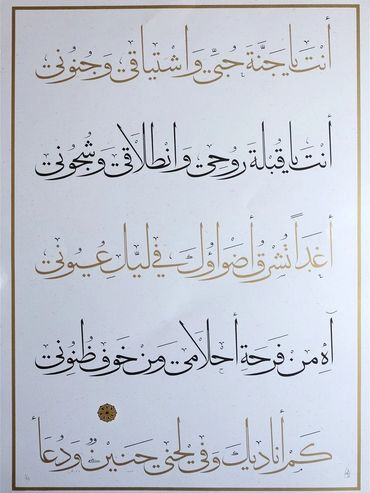 أنت يا جنَّة حُبيّ واشتياقي وجنوني
أنت يا قبلة روحي وانطلاقي وشجوني
أغداً تُشرق أضواؤك في ليل عيوني
آهِ من فرحة أحلامي ومن خوف ظنوني
كم أناديك وفي لحني حنينٌ ودعاء